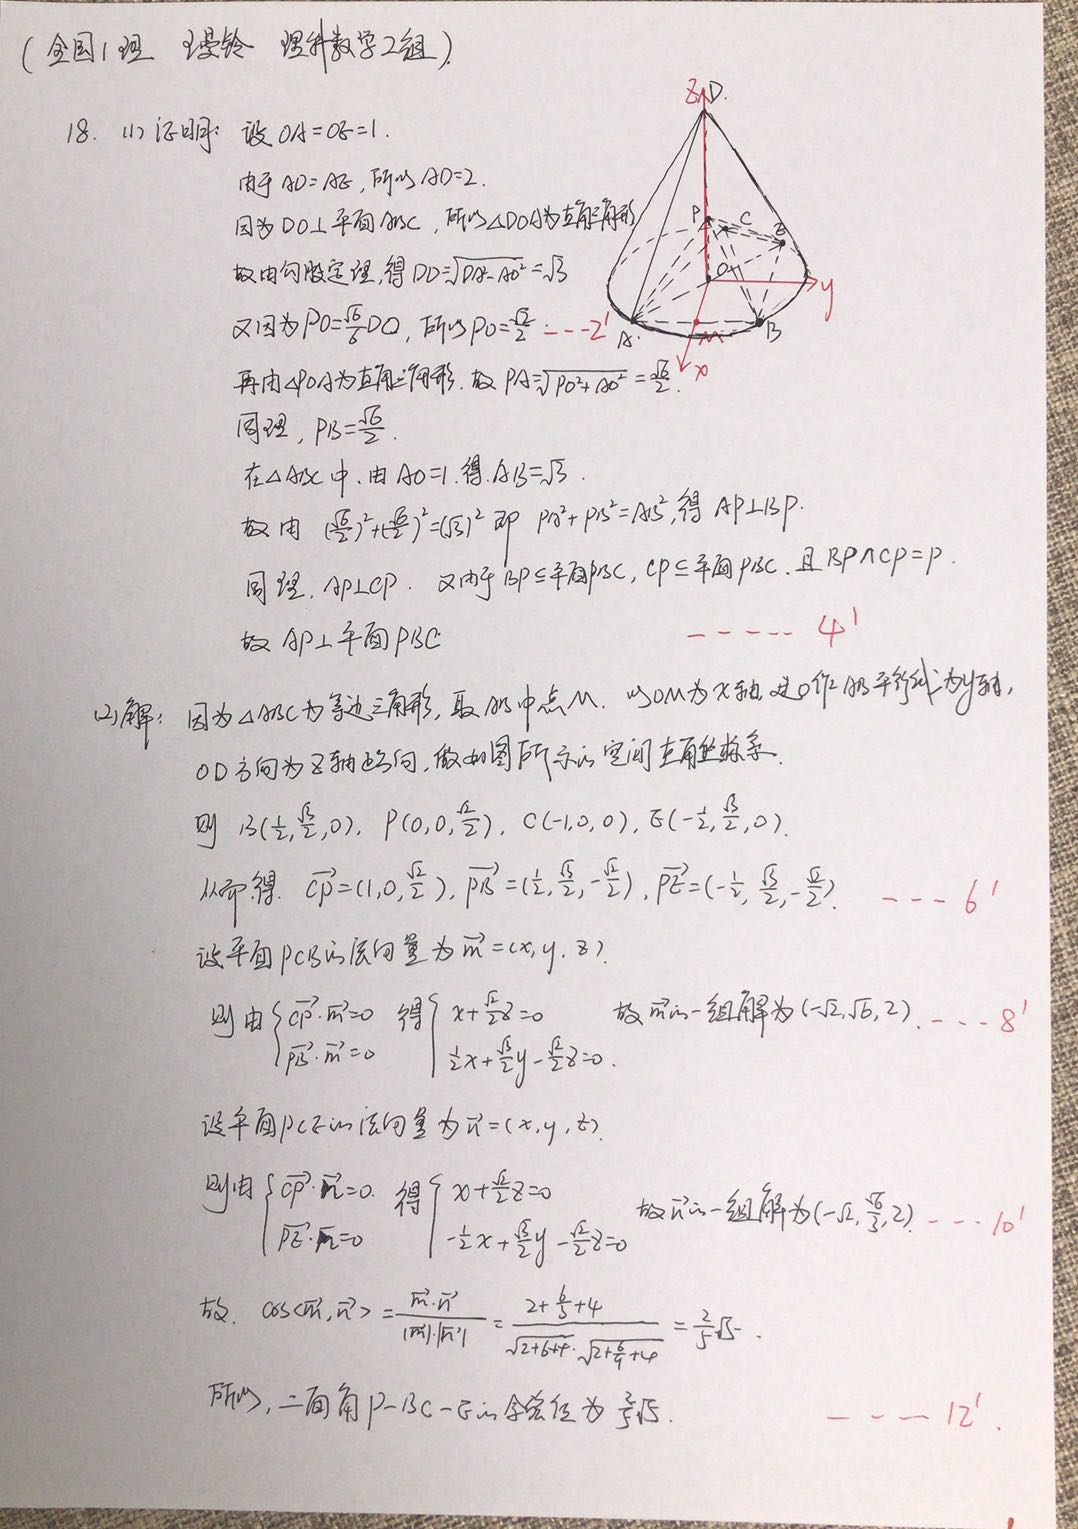 (全国1理 理科数学2组).
18. (1) 证明: 设OA=OE=1.
由于AD=AE, 所以AD=2.
因为DO⊥平面ABC, 所以△DOA为直角三角形
故由勾股定理, 得DO=√(DA²-AO²)=√3
又因为PO=√6/6 DO, 所以PO=√2/2. ---2'
再由△POA为直角三角形. 故PA=√(PO²+AO²)=√6/2.
同理, PB=√6/2.
在△ABC中, 由AO=1. 得. AB=√3.
故由 (√6/2)²+(√6/2)²=(√3)² 即 PA²+PB²=AB², 得AP⊥BP.
同理, AP⊥CP. 又由于BP⊆平面PBC, CP⊆平面PBC. 且BP∩CP=P.
故AP⊥平面PBC ----- 4'
(2)解: 因为△ABC为等边三角形, 取AB中点M. 以OM为x轴, 过O作AB平行线为y轴,
OD方向为z轴方向, 做如图所示的空间直角坐标系.
则 B(1/2, √3/2, 0), P(0, 0, √2/2), C(-1, 0, 0), E(-1/2, √3/2, 0).
从而得. CP=(1, 0, √2/2), PB=(1/2, √3/2, -√2/2), PE=(-1/2, √3/2, -√2/2). ---6'
设平面PCB的法向量为m=(x, y, z).
则由 {CP·m=0 得 {x+√2/2 z=0 故m的一组解为(-√2, √6, 2). ---8'
PB·m=0 1/2 x+√3/2 y-√2/2 z=0.
设平面PCE的法向量为n=(x, y, z).
则由 {CP·n=0. 得 {x+√2/2 z=0 故n的一组解为(-√2, √6/3, 2). ---10'
PE·n=0 -1/2 x+√3/2 y-√2/2 z=0
故. cos<m, n>=m·n/(|m|·|n|)=(2+6/3+4)/(√(2+6+4)·√(2+6/9+4))=2/5 √5.
所以, 二面角P-BC-E的余弦值为2/5 √5. ---12'
z
D.
P
C
E
O
y
A.
M
B
x